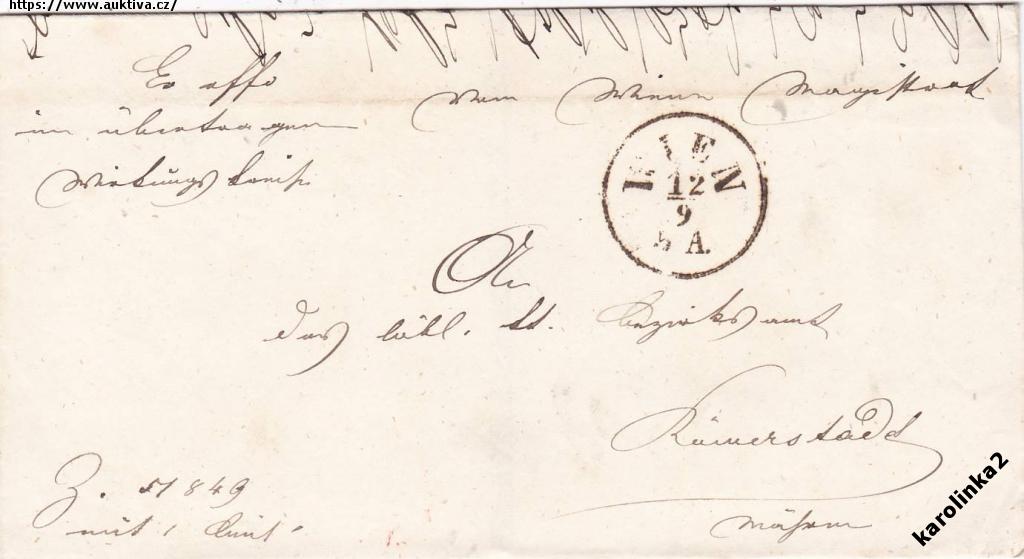 https://www.auktiva.cz/
Ex offo
im übertragenen
Wirkungskreise
Vom Wiener Magistrat
WIEN
12
9
5 A.
An
das löbl. k.k. Bezirksamt
Römerstadt
Mähren
Z. 51849
mit 1
karolinka2